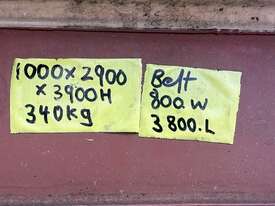 1000x2900
x 3900H
340kg
Belt
800.W
3800.L